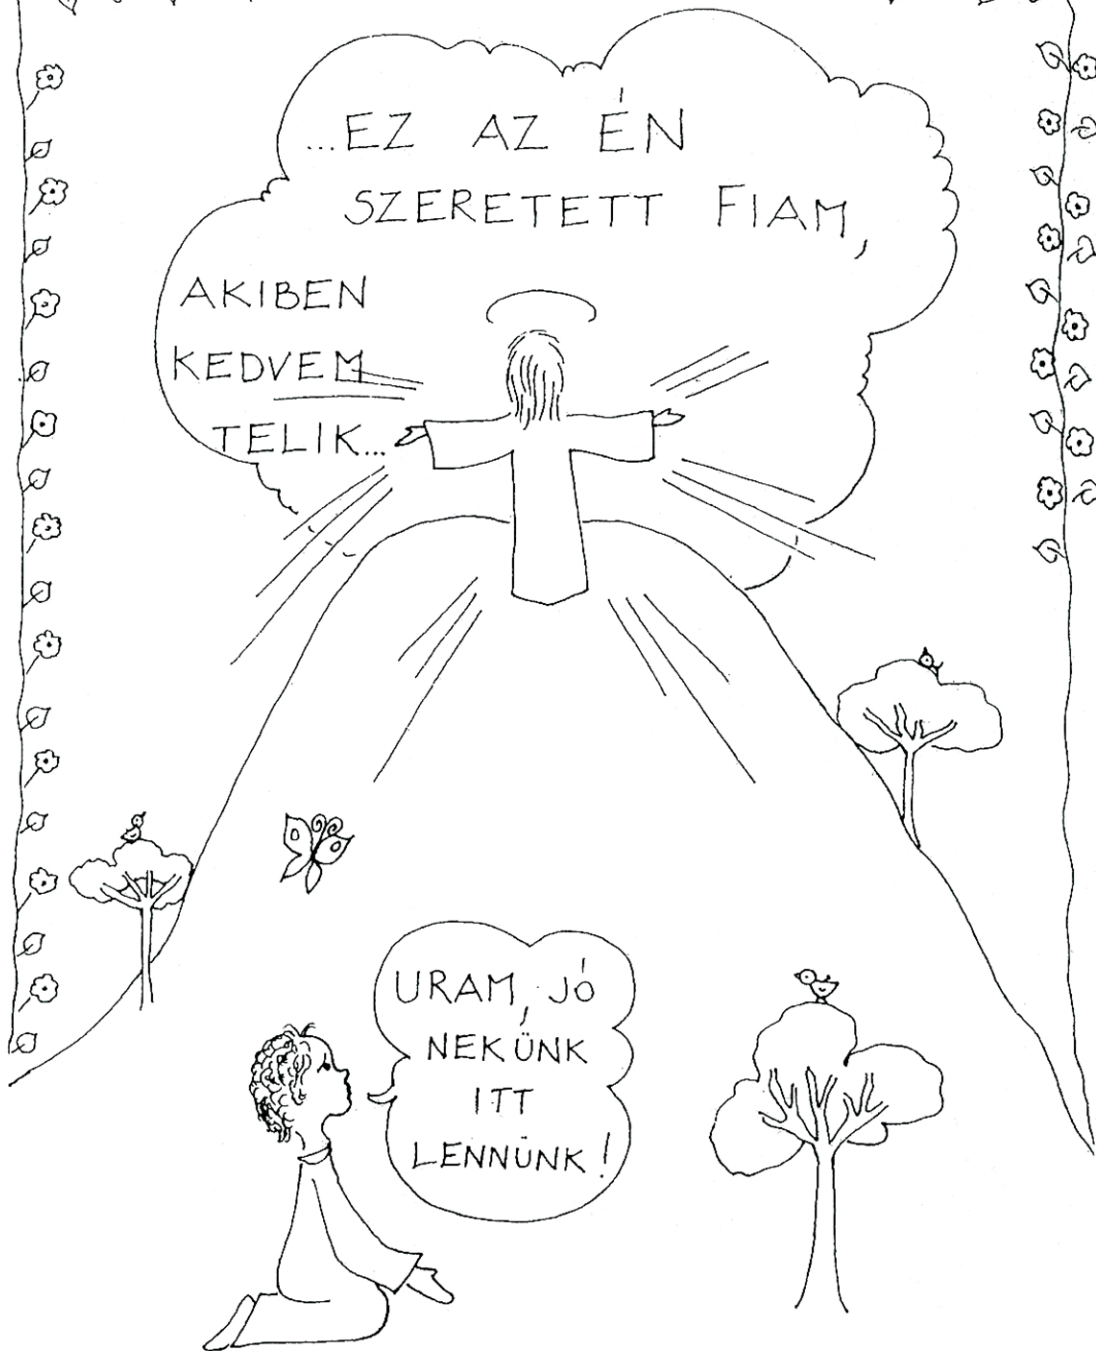 ...EZ AZ ÉN
SZERETETT FIAM,
AKIBEN
KEDVEM
TELIK...
URAM, JÓ
NEKÜNK
ITT
LENNÜNK!